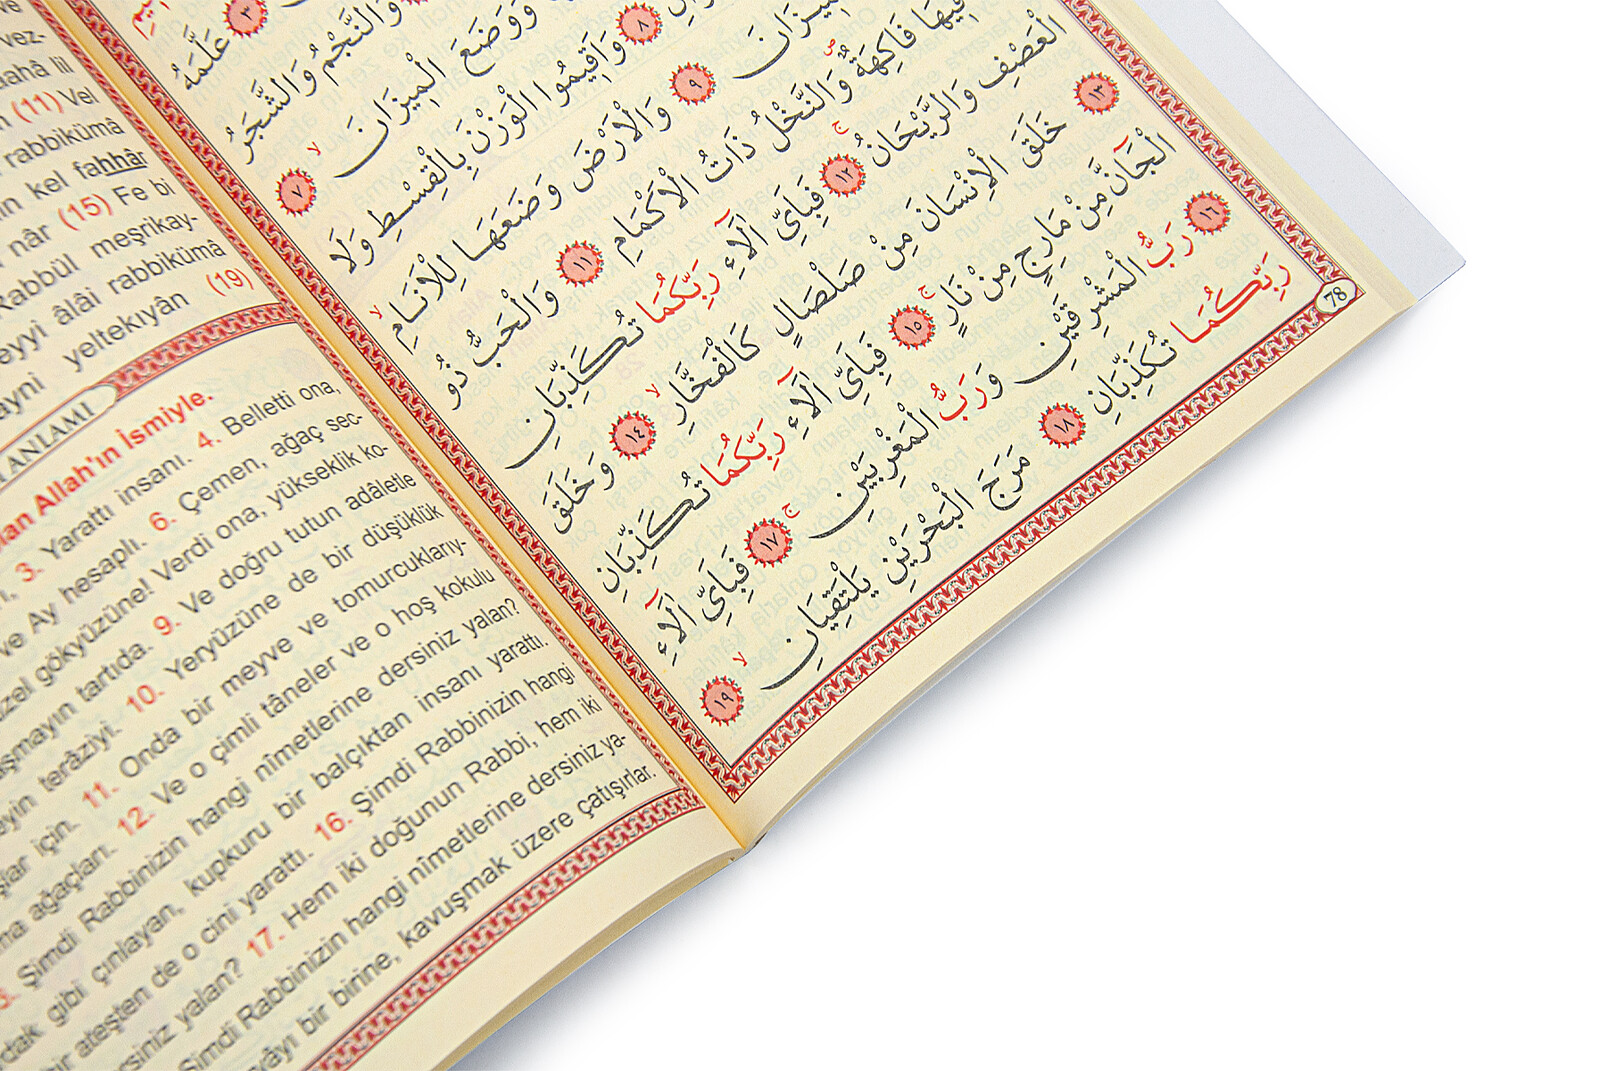 vez-
lil
(11) Vel
rabbikümâ
kel fahhâr
nâr (15) Fe bi
Rabbül meşrikay-
âlâi rabbikümâ
yeltekıyân (19)
ANLAMI
Allah'ın İsmiyle.
3. Yarattı insanı. 4. Belletti ona,
ve Ay hesaplı. 6. Çemen, ağaç sec-
gökyüzüne! Verdi ona, yükseklik ko-
tartıda. 9. Ve doğru tutun adâletle
terâziyi. 10. Yeryüzüne de bir düşüklük
için. 11. Onda bir meyve ve tomurcuklarıy-
ağaçları. 12. Ve o çimli tâneler ve o hoş kokulu
Şimdi Rabbinizin hangi nîmetlerine dersiniz yalan?
gibi çınlayan, kupkuru bir balçıktan insanı yarattı.
ateşten de o cini yarattı. 16. Şimdi Rabbinizin hangi
yalan? 17. Hem iki doğunun Rabbi, hem iki
Şimdi Rabbinizin hangi nîmetlerine dersiniz ya-
bir birine, kavuşmak üzere çatışırlar.
٣ عَلَّمَهُ
وَالنَّجْمُ وَالشَّجَرُ
وَوَضَعَ الْمِيزَانَ ۙ ٧
٨ وَاَقِيمُوا الْوَزْنَ بِالْقِسْطِ وَلَا
الْمِيزَانَ ٩ وَالْاَرْضَ وَضَعَهَا لِلْاَنَامِ ۙ
فِيهَا فَاكِهَةٌ ۖ وَالنَّخْلُ ذَاتُ الْاَكْمَامِ ١١ وَالْحَبُّ ذُو
الْعَصْفِ وَالرَّيْحَانُ ۚ ١٢ فَبِاَيِّ اٰلَٓاءِ رَبِّكُمَا تُكَذِّبَانِ
١٣ خَلَقَ الْاِنْسَانَ مِنْ صَلْصَالٍ كَالْفَخَّارِ ۙ ١٤ وَخَلَقَ
الْجَٓانَّ مِنْ مَارِجٍ مِنْ نَارٍ ۚ ١٥ فَبِاَيِّ اٰلَٓاءِ رَبِّكُمَا تُكَذِّبَانِ
١٦ رَبُّ الْمَشْرِقَيْنِ وَرَبُّ الْمَغْرِبَيْنِ ۚ ١٧ فَبِاَيِّ اٰلَٓاءِ
رَبِّكُمَا تُكَذِّبَانِ ١٨ مَرَجَ الْبَحْرَيْنِ يَلْتَقِيَانِ ۙ ١٩
78